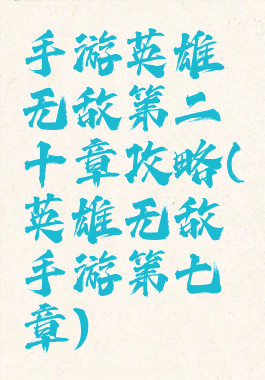 手游英雄
无敌第二
十章攻略(
英雄无敌
手游第七
章)